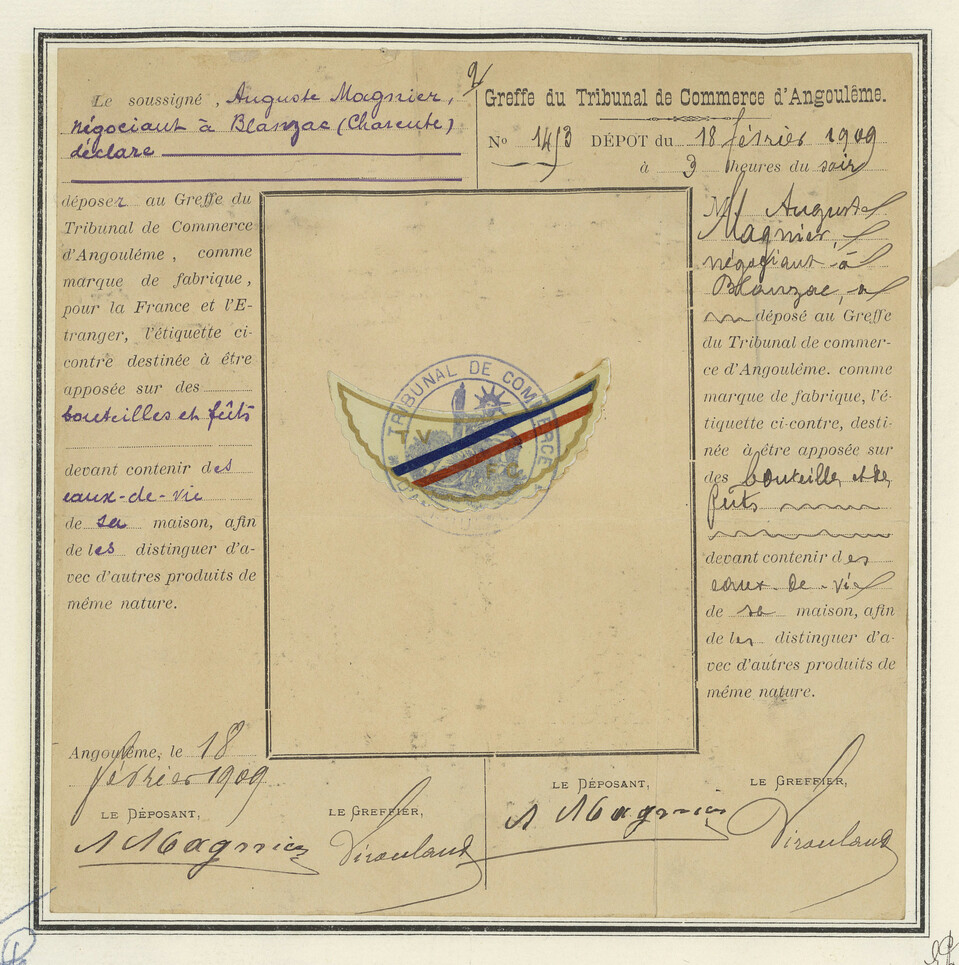 Le soussigné, Auguste Magnier,
négociant à Blanzac (Charente)
déclare
déposer au Greffe du
Tribunal de Commerce
d'Angoulême, comme
marque de fabrique,
pour la France et l'E-
tranger, l'étiquette ci-
contre destinée à être
apposée sur des
bouteilles et fûts
devant contenir des
eaux-de-vie
de sa maison, afin
de les distinguer d'a-
vec d'autres produits de
même nature.
Angoulême, le 18
février 1909
LE DÉPOSANT, LE GREFFIER,
A Magnier
Greffe du Tribunal de Commerce d'Angoulême.
No 1453 DÉPOT du 18 février 1909
à 3 heures du soir
M. Auguste
Magnier,
négociant à
Blanzac, a
déposé au Greffe
du Tribunal de commer-
ce d'Angoulême. comme
marque de fabrique, l'é-
tiquette ci-contre, desti-
née à être apposée sur
des bouteilles et des
fûts
devant contenir des
eaux-de-vie
de sa maison, afin
de les distinguer d'a-
vec d'autres produits de
même nature.
LE DÉPOSANT, LE GREFFIER,
A Magnier
TRIBUNAL DE COMMERCE